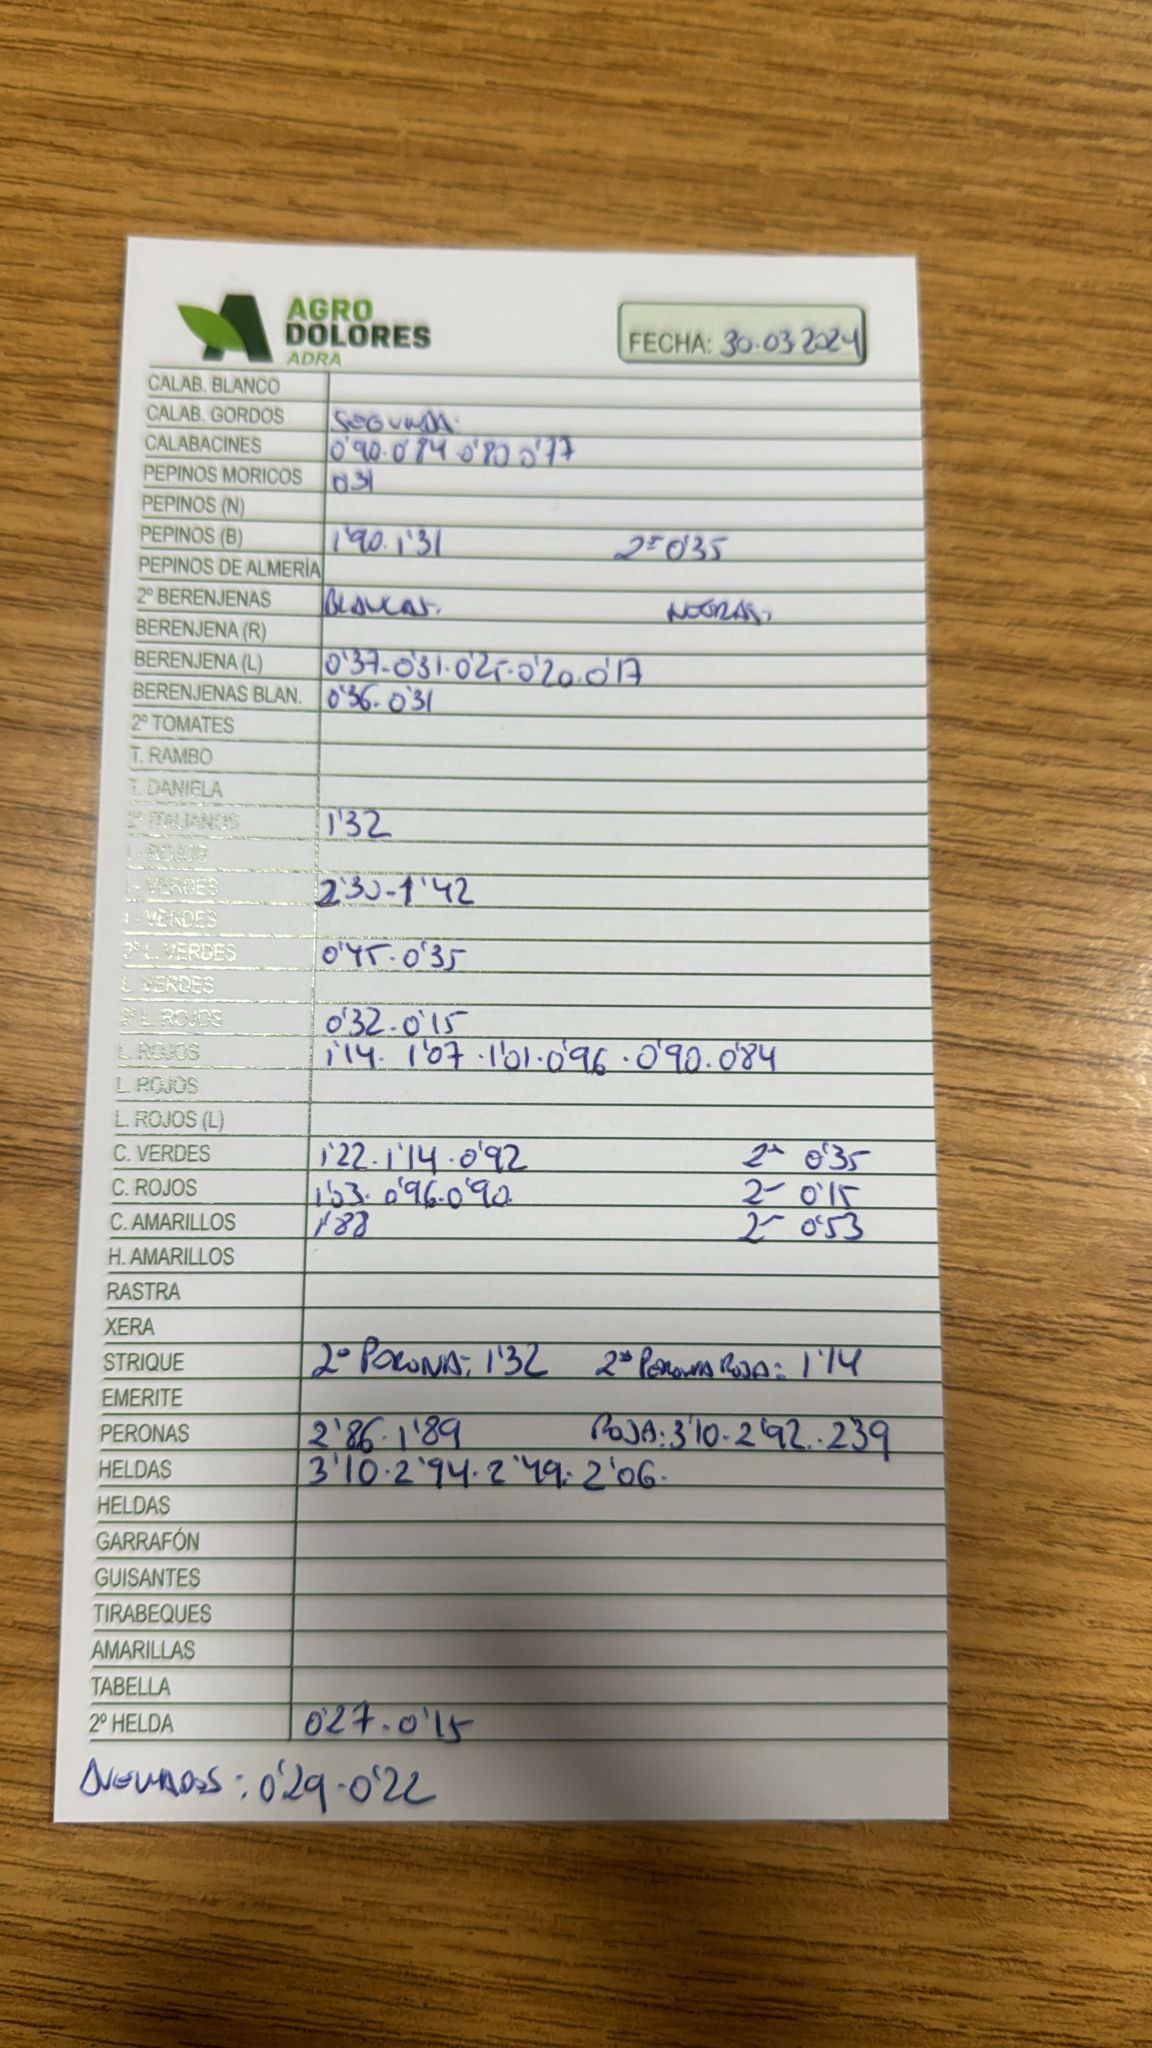 AGRO
DOLORES
ADRA
FECHA: 30.03.2024
CALAB. BLANCO
CALAB. GORDOS SEGUNDA.
CALABACINES 0'90.0'84.0'80 0'77
PEPINOS MORICOS 031
PEPINOS (N)
PEPINOS (B) 1'90.1'31 2ª 0'35
PEPINOS DE ALMERÍA
2º BERENJENAS BLANCAS. NEGRAS.
BERENJENA (R)
BERENJENA (L) 0'37.0'31.0'25.0'20.0'17
BERENJENAS BLAN. 0'36.0'31
2º TOMATES
T. RAMBO
T. DANIELA
2º ITALIANOS 1'32
I - ROJOS
I - VERDES 2'30-1'42
I - VERDES
2º L. VERDES 0'45.0'35
L. VERDES
2º L. ROJOS 0'32.0'15
L. ROJOS 1'14. 1'07.1'01.0'96.0'90.0'84
L. ROJOS
L. ROJOS (L)
C. VERDES 1'22.1'14.0'92 2ª 0'35
C. ROJOS 1'03. 0'96.0'90. 2ª 0'15
C. AMARILLOS 1'88 2ª 0'53
H. AMARILLOS
RASTRA
XERA
STRIQUE 2ª PERONA: 1'32 2ª PERONA ROJA: 1'14
EMERITE
PERONAS 2'86.1'89 ROJA: 3'10.2'92.239
HELDAS 3'10.2'94.2'49.2'06.
HELDAS
GARRAFÓN
GUISANTES
TIRABEQUES
AMARILLAS
TABELLA
2º HELDA 0'27.0'15
0'29.0'22